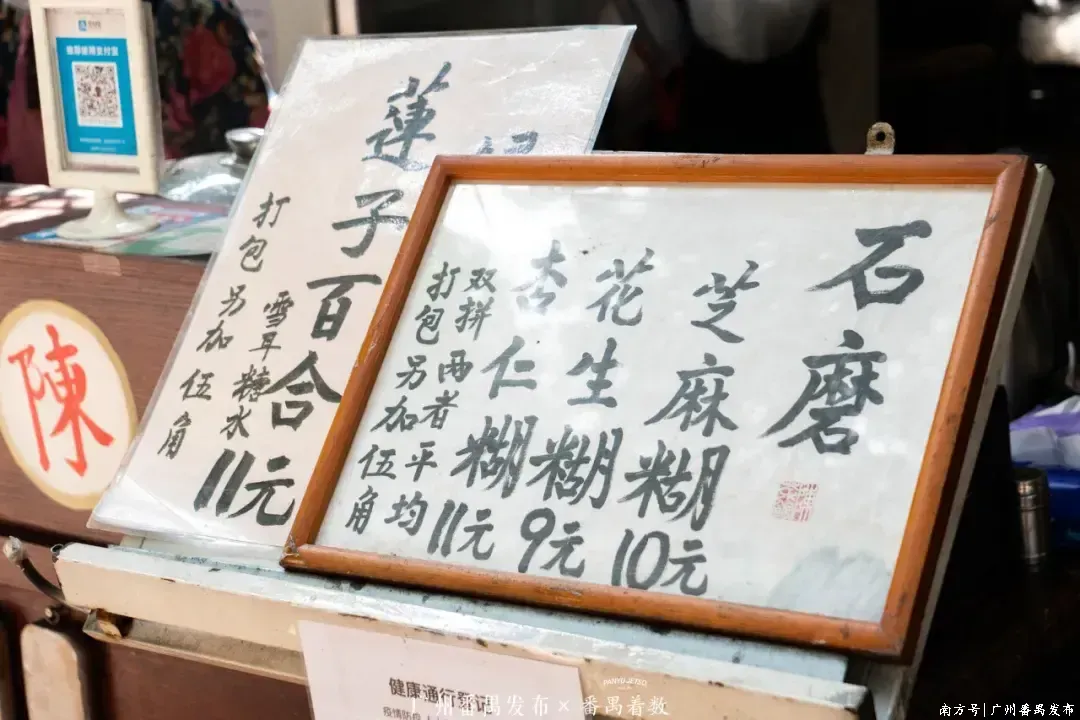 石磨
芝麻糊 10元
花生糊 9元
杏仁糊 11元
双拼两者平均
打包另加伍角
蓮子百合
雪耳糖水 11元
打包另加伍角
陳
健康通行登记
广州番禺发布×番禺着数
PANYU JETSO
南方号|广州番禺发布